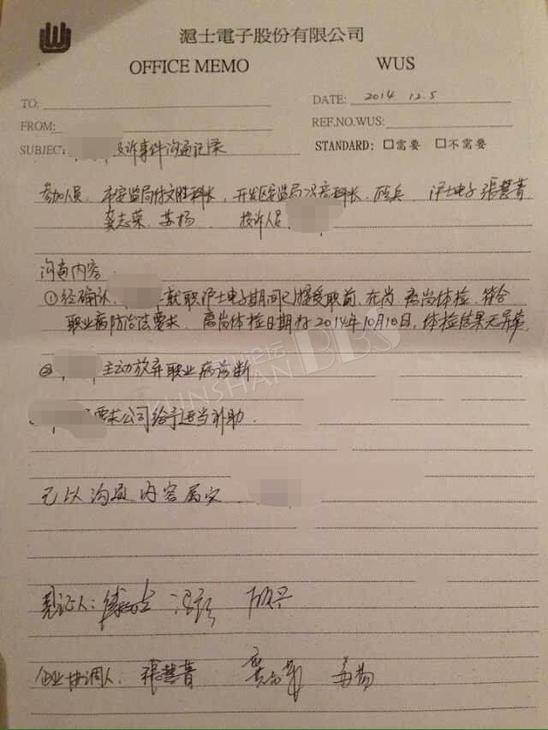 滬士電子股份有限公司
OFFICE MEMO WUS
TO: DATE: 2014 12.5
FROM: REF.NO.WUS:
SUBJEC 投诉事件沟通记录 STANDARD: □需要 □不需要
参加人员 市安监局 科长 开发区安监局 科长 沪士电子 張慧菁
龚志荣 苏杨 投诉人员
沟通内容
①经确认 就职沪士电子期间已接受职前 在岗 离岗体检 符合
职业病防治法要求 离岗体检日期为2014年10月10日,体检结果无异常
② 主动放弃职业病诊断
要求公司给予适当补助
KUNSHAN BBS
以沟通内容属实
见证人:
企业协调人 張慧菁 龚志荣 苏杨